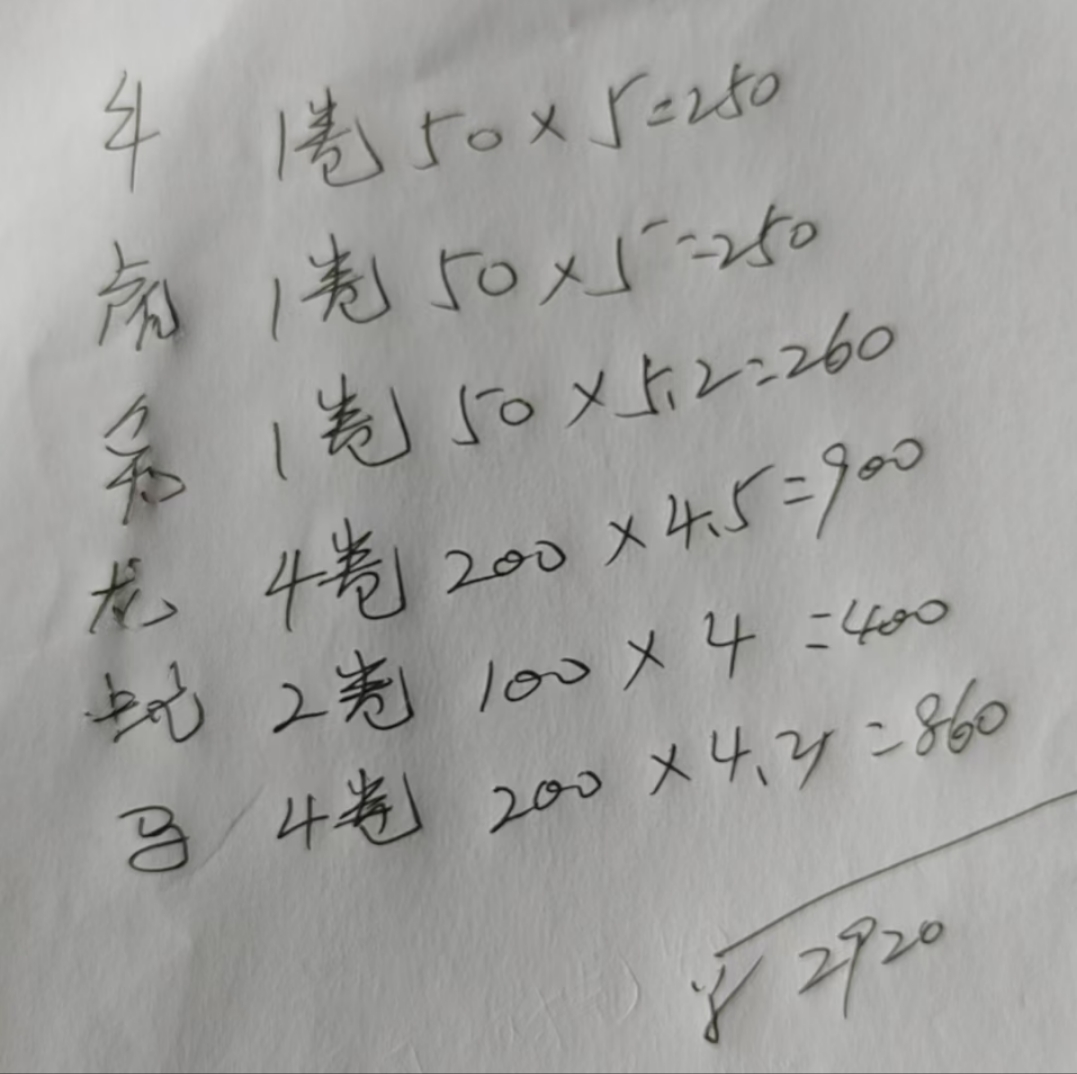 牛 1卷 50×5=250
虎 1卷 50×5=250
兔 1卷 50×5.2=260
龙 4卷 200×4.5=900
蛇 2卷 100×4=400
马 4卷 200×4.3=860
¥2920